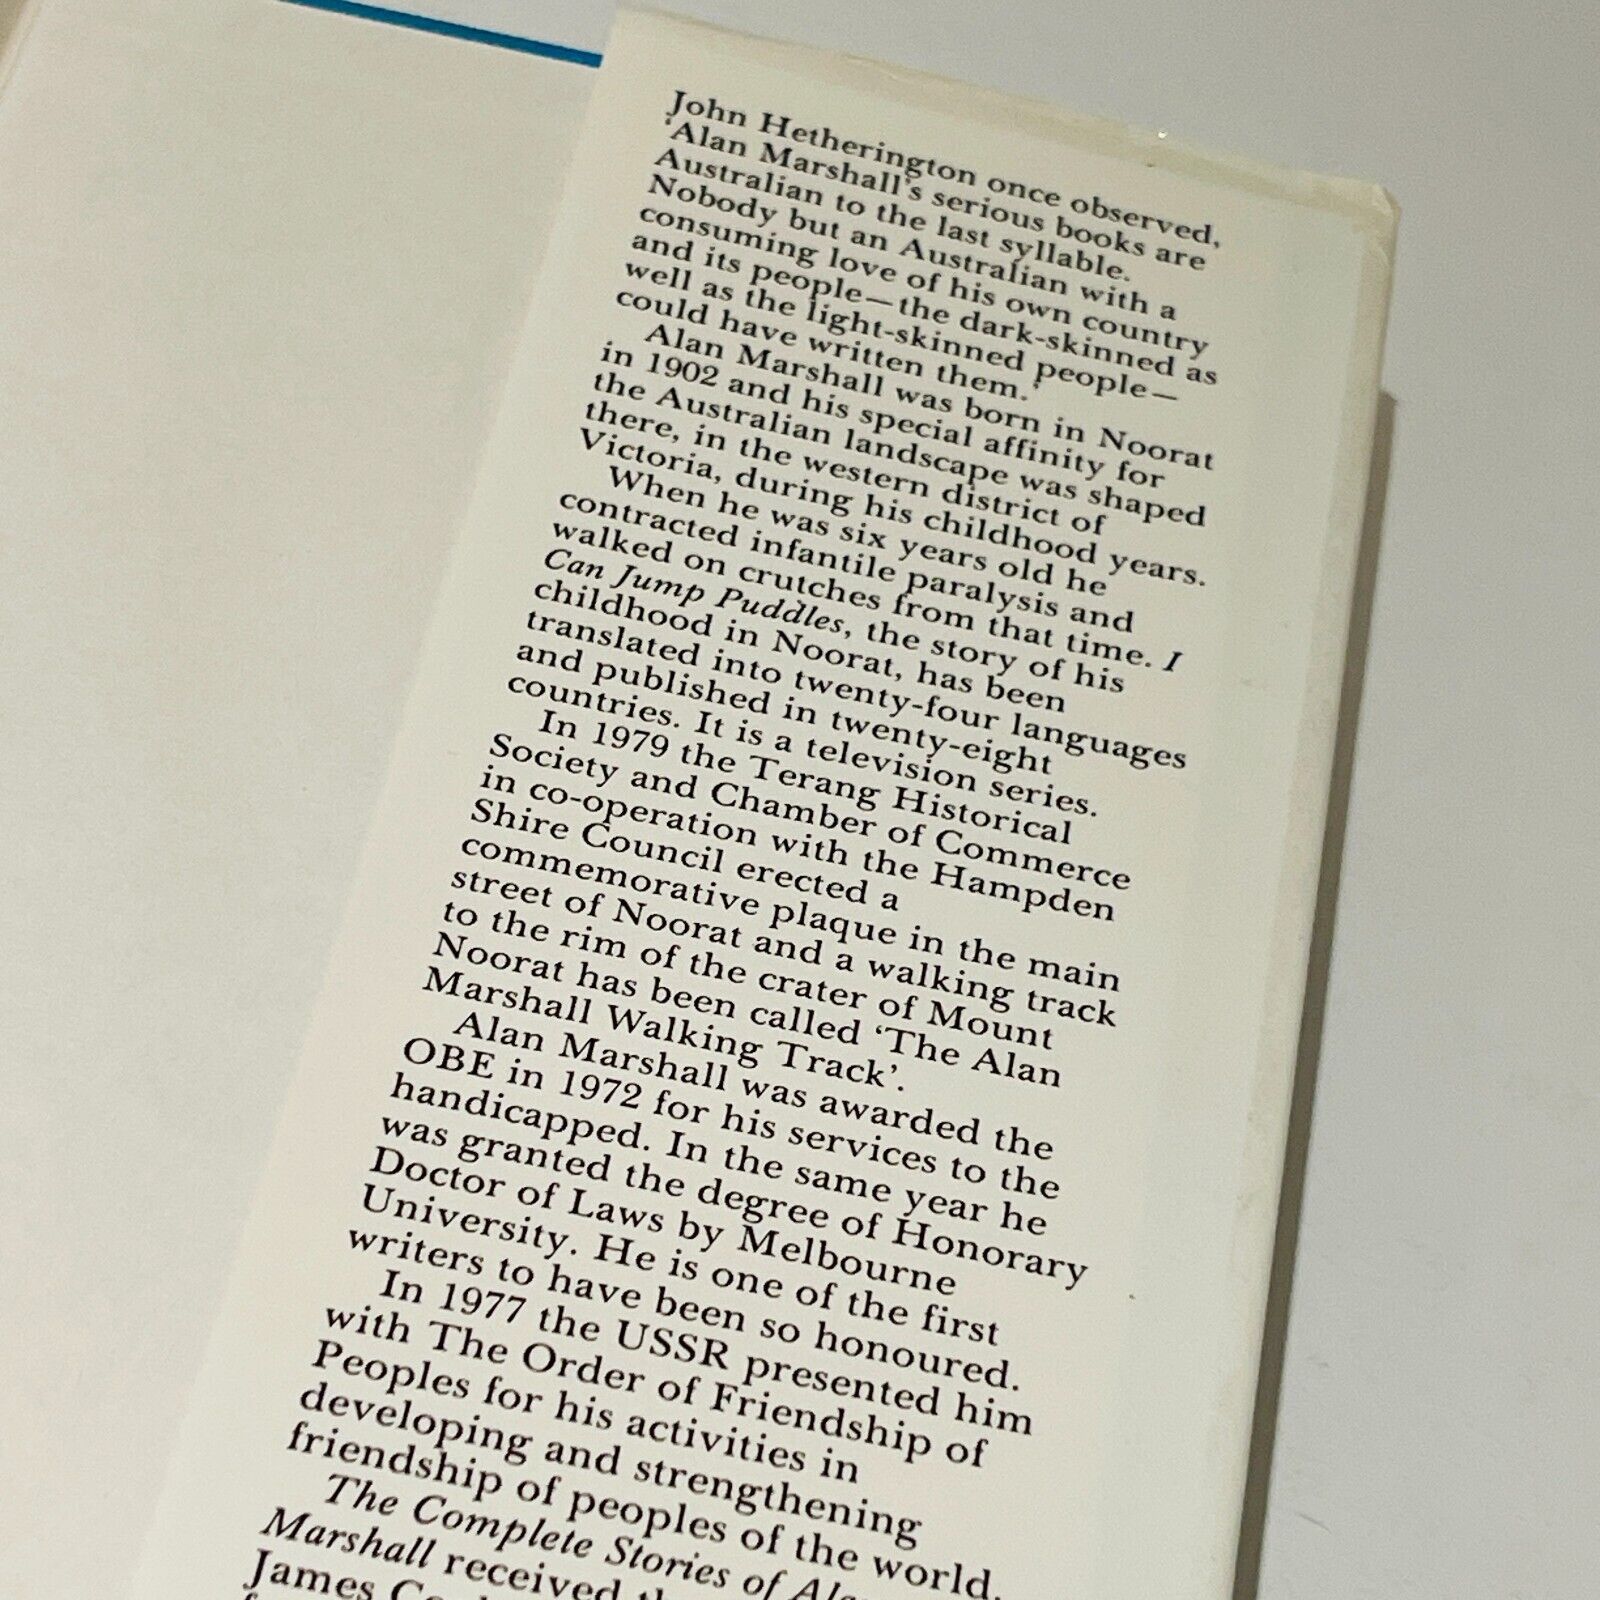 John Hetherington once observed,
'Alan Marshall's serious books are
Australian to the last syllable.
Nobody but an Australian with a
consuming love of his own country
and its people—the dark-skinned as
well as the light-skinned people—
could have written them.'
Alan Marshall was born in Noorat
in 1902 and his special affinity for
the Australian landscape was shaped
there, in the western district of
Victoria, during his childhood years.
When he was six years old he
contracted infantile paralysis and
walked on crutches from that time. I
Can Jump Puddles, the story of his
childhood in Noorat, has been
translated into twenty-four languages
and published in twenty-eight
countries. It is a television series.
In 1979 the Terang Historical
Society and Chamber of Commerce
in co-operation with the Hampden
Shire Council erected a
commemorative plaque in the main
street of Noorat and a walking track
to the rim of the crater of Mount
Noorat has been called 'The Alan
Marshall Walking Track'.
Alan Marshall was awarded the
OBE in 1972 for his services to the
handicapped. In the same year he
was granted the degree of Honorary
Doctor of Laws by Melbourne
University. He is one of the first
writers to have been so honoured.
In 1977 the USSR presented him
with The Order of Friendship of
Peoples for his activities in
developing and strengthening
friendship of peoples of the world.
The Complete Stories of
Marshall received
James